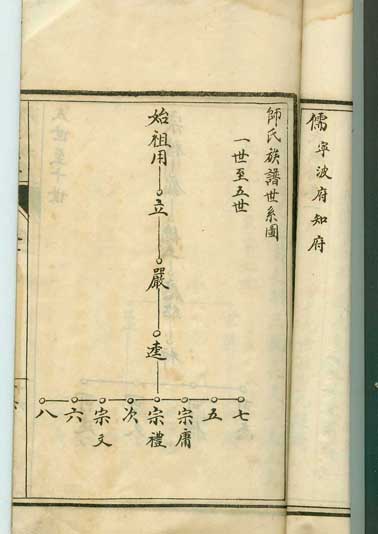 儒寧波府知府
師氏族譜世系圖
一世至五世
始祖用
立
嚴
逵
七
五
宗庸
宗禮
次
宗文
六
八